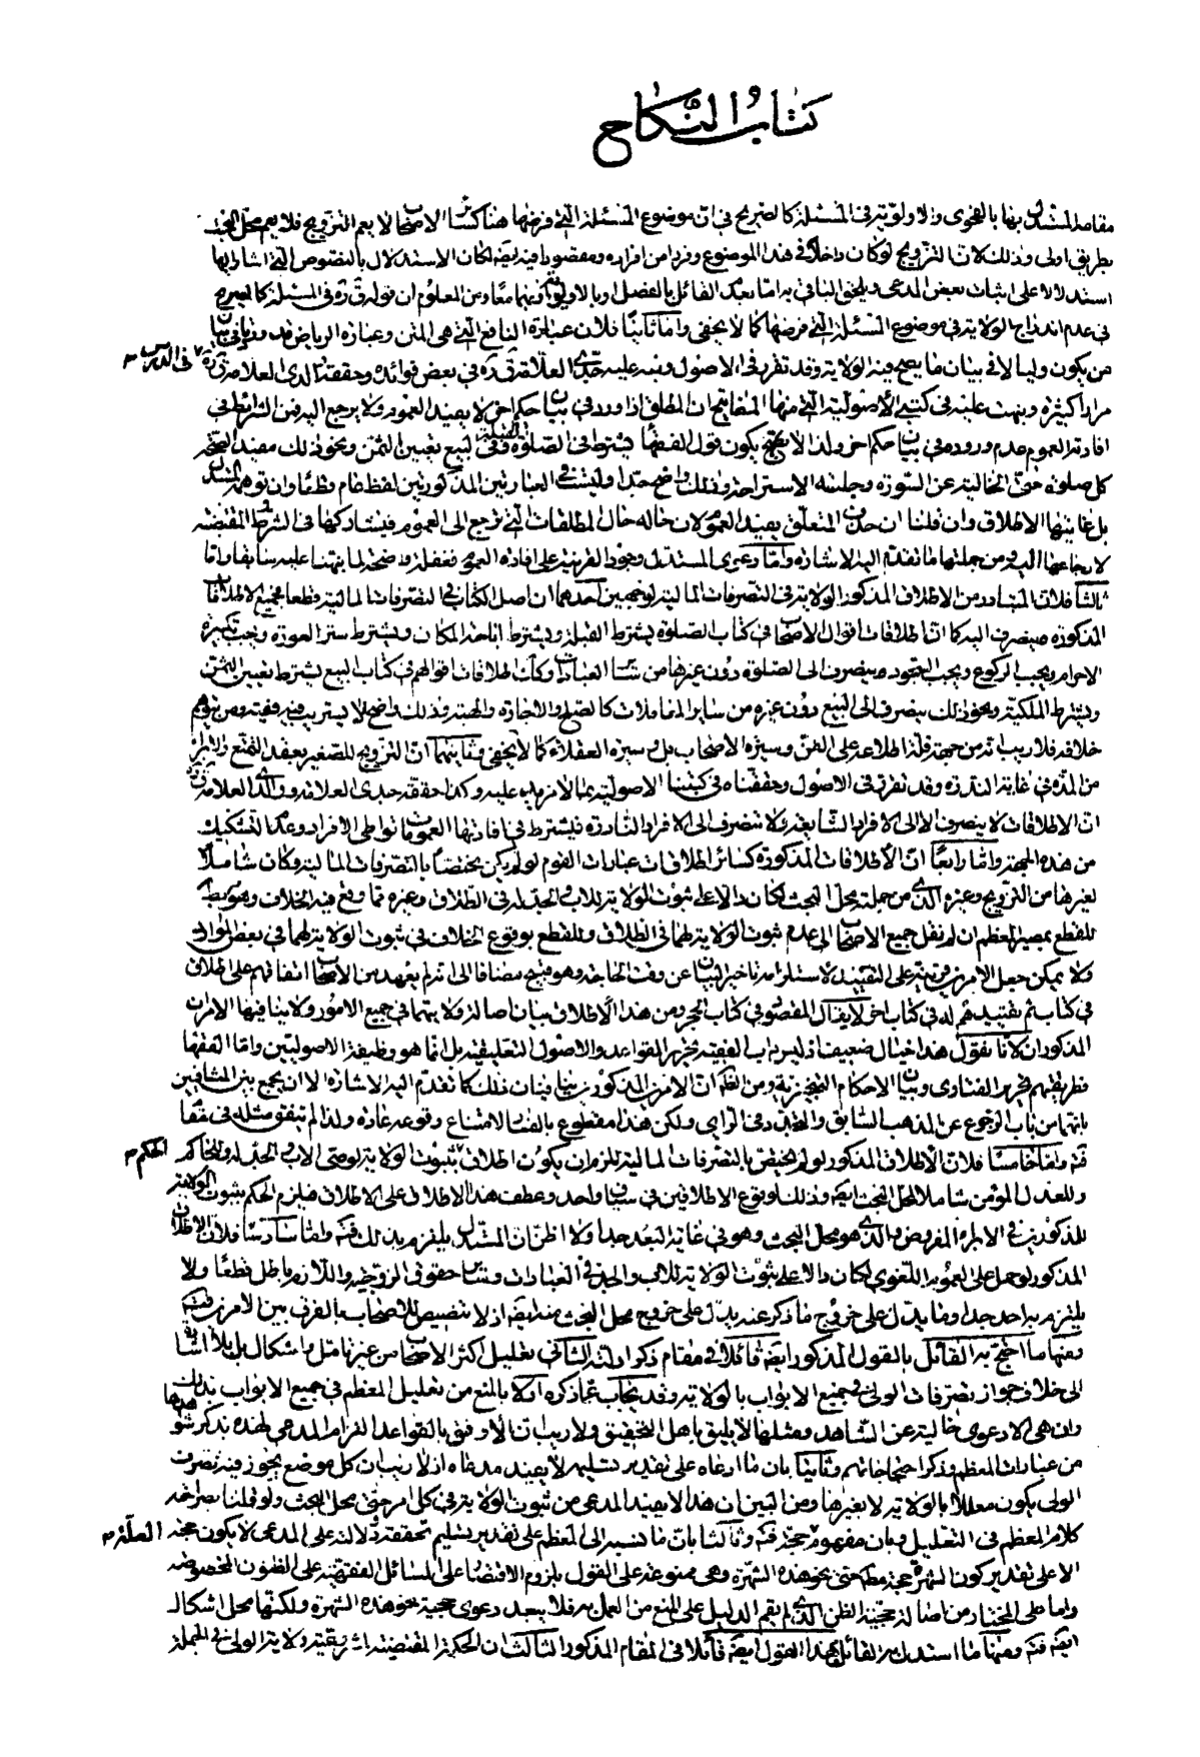 كتاب النكاح
مقامه المستدل بها بالفحوى والاولويّة في المسئلة كالصريح في انّ موضوع المسئلة الّتي فرضها هنا كتب الاصحاب لا يعم التزويج فلا يعم محل البحث
بطريق اولى وذلك لانّ التزويج لو كان داخلا في هذا الموضوع وفردا من افراده ومقصودا فيه ايضا لكان الاستدلال بالنصوص التي اشار اليها
استدلالا على اثبات بعض المدعى ويلحق الباقي به امّا بعدم القائل بالفصل او بالاولوية او بهما معا ومن المعلوم ان قوله قدّه في المسئلة كالصريح
في عدم اندراج الولاية في موضوع المسئلة الّتي فرضها كما لا يخفى وامّا ثانيا فلان عبارة النافع الّتي هي المتن وعبارة الرياض قد وردتا في بيان
من يكون وليا لا في بيان ما يصح فيه الولاية وقد تقرر في الاصول ونبه عليه جدّي العلامة قدّه في بعض فوائده وحققه والدي العلامة قدّه في الدرس
مرارا كثيرة ونبهت عليه في كتبي الاصولية الّتي منها المفاتيح ان المطلق اذا ورد في بيان حكم اخر لا يفيد العموم ولا يرجع اليه فمن الشرائط في
افادته العموم عدم وروده في بيان حكم اخر ولذا لا يحتج بكون قول الفقهاء يشترط في الصلوة القبلة وفي البيع تعيين الثمن ونحو ذلك مفيدا لصحة
كل صلوة حتى الخالية عن السورة وجلسة الاستراحة وذلك واضح جدا وليست في العبارتين المذكورتين لفظ عام وظ‍ئا وان توهمه المستدل
بل غايتها الاطلاق وان قلنا ان حذف المتعلق يفيد العموم لان حاله حال المطلقات الّتي ترجع الى العموم فيشاركها في الشرط المقتضية
لارجاعها اليه ومن جملتها ما تقدم اليه الاشارة وامّا دعوى المستدل وجود القرينة على افادة العموم فغفلة واضحة لما نبهنا عليه سابقا وامّا
ثالثا فلان المتبادر من الاطلاق المذكور الولاية في التصرفات المالية لوجهين احدهما ان اصل الكتاب في التصرفات المالية قطعا فجميع الاطلاقات
المذكورة منصرف اليه كما انّ اطلاقات اقوال الاصحاب في كتاب الصلوة يشترط القبلة ويشترط اباحة المكان ويشترط ستر العورة ويجب تكبيرة
الاحرام ويجب الركوع ويجب السجود منصرف الى الصلوة دون غيرها من سائر العبادات وكذا اطلاقات اقوالهم في كتاب البيع يشترط تعيين الثمن
ويشترط الملكية ونحو ذلك ينصرف الى البيع دون غيره من سائر المعاملات كالصلح والاجارة والهبة وذلك واضح لا يستريب فيه فقيه ومن توهم
خلافه فلا ريب انه من جهة قلة اطلاعه على الفن وسيرة الاصحاب بل وسيرة العقلاء كما لا يخفى وثانيهما انّ التزويج للصغير بعقد التمتع والابراء
من المدة في غاية الندرة وقد تقرر في الاصول وحققناه في كتبنا الاصولية بما لا مزيد عليه وكذا حققه جدي العلامة ووالدي العلامة قدّهما
انّ الاطلاقات لا ينصرف الّا الى الافراد الشايعة ولا تنصرف الى الافراد النادرة فيشترط في افادتها العموم تواطي الافراد وعدم التشكيك
من هذه الجهة وامّا رابعا انّ الاطلاقات المذكورة كسائر اطلاقات عبارات القوم لو لم يكن مختصا بالتصرفات المالية وكان شاملا
لغيرها من التزويج وغيره الّذي من جملته محل البحث لكان دالا على ثبوت الولاية للاب والجد له في الطلاق وغيره ممّا وقع فيه الخلاف وهو بط
للقطع بمصير المعظم ان لم نقل جميع الاصحاب الى عدم ثبوت الولاية لهما في الطلاق وللقطع بوقوع الخلاف في ثبوت الولاية لهما في بعض الموارد
ولا يمكن جعل الامرين قرينة على التقييد لاستلزامه تاخير البيان عن وقت الحاجة وهو قبيح مضافا الى انه لم يعهد من الاصحاب اتفاقهم على اطلاق
في كتاب ثم تقييدهم له في كتاب اخر لا يقال المقصود في كتاب الحجر ومن هذا الاطلاق بيان اصالة ولايتهما في جميع الامور ولا ينافيها الامران
المذكوران لانا نقول هذا خيال ضعيف اذ ليس داب الفقيه تحرير القواعد والاصول التعليقية بل انّما هو وظيفة الاصوليين وامّا الفقهاء
فطريقتهم تحرير الفتاوى وبيان الاحكام التنجيزية ومن الظّ انّ الامرين المذكورين ينافيان ذلك كما تقدم اليه الاشارة الا ان يجمع بين المتنافيين
بانهما من باب الرجوع عن المذهب السابق والتجدد في الراي ولكن هذا مقطوع بالفساد لامتناع وقوعه عادة ولذا لم يتفق مثله في مقام
فتّه وامّا خامسا فلان الاطلاق المذكور لو لم يختص بالتصرفات المالية للزم ان يكون اطلاق ثبوت الولاية لوصي الاب والجد له وللحاكم الحكم
وللعدل المؤمن شاملا لمحل البحث ايضا وذلك لوقوع الاطلاقين في سياق واحد وعطف هذا الاطلاق على الاطلاق فيلزم الحكم بثبوت الولاية
للمذكورين في الابراء المفروض والّذي هو محل البحث وهو في غاية البعد جدا ولا اظن ان المستدل يلتزم بذلك فتّه وامّا سادسا فلان الاطلاق
المذكور لو حمل على العموم اللغوي لكان دالا على ثبوت الولاية للاب والجد في العبادات وسائر حقوق الزوجية واللازم باطل قطعا ولا
يلتزم به احد جدا وما يدل على خروج ما ذكر عنه يدل على خروج محل البحث منه ايضا اذ لا تنصيص للاصحاب بالفرق بين الامرين فتّه
ومنها ما احتج به القائل بالقول المذكور ايضا قائلا في مقام ذكر ادلته الثاني تعليل اكثر الاصحاب من غير تامل واشكال بل بلا اشارة
الى خلاف جواز تصرفات الولي في جميع الابواب بالولاية وقد يجاب عمّا ذكره اولا بالمنع من تعليل المعظم في جميع الابواب بذلك
وان هي الا دعوى خالية عن الشاهد ومثلها لا يليق باهل التحقيق ولا ريب ان الاوفق بالقواعد التزام المدعي لهذه بذكر شواهدها
من عبارات المعظم وذكر احتجاجاتهم وثانيا بان ما ادعاه على تقدير تسليمه لا يفيد مدعاه اذ لا ريب ان كل موضع يجوز فيه تصرف
الولي يكون معللا بالولاية لا بغيرها ومن البين ان هذا لا يفيد المدعى من ثبوت الولاية في كل امر حتى محل البحث ولو قلنا بصراحة
كلام المعظم في التعليل وبان مفهومه حجة فتّه وثالثا بان ما نسبه الى المعظم على تقدير تسليم تحققه ودلالته على المدعى لا يكون حجة العلّة
الا على تقدير كون الشهرة حجة مط حتى نحو هذه الشهرة وهي ممنوعة على القول بلزوم الاقتصار على المسائل الفقهية على الظنون المخصوصة
وامّا على المختار من اصالة حجية الظن الّذي لم يقم الدليل على المنع من العمل به فلا يبعد دعوى حجية نحو هذه الشهرة ولكنها محل اشكال
ايضا فتّه ومنها ما استدل به القائل بهذا القول ايضا قائلا في المقام المذكور الثالث ان الحكمة المقتضية لشرعية ولاية الولي في الجملة